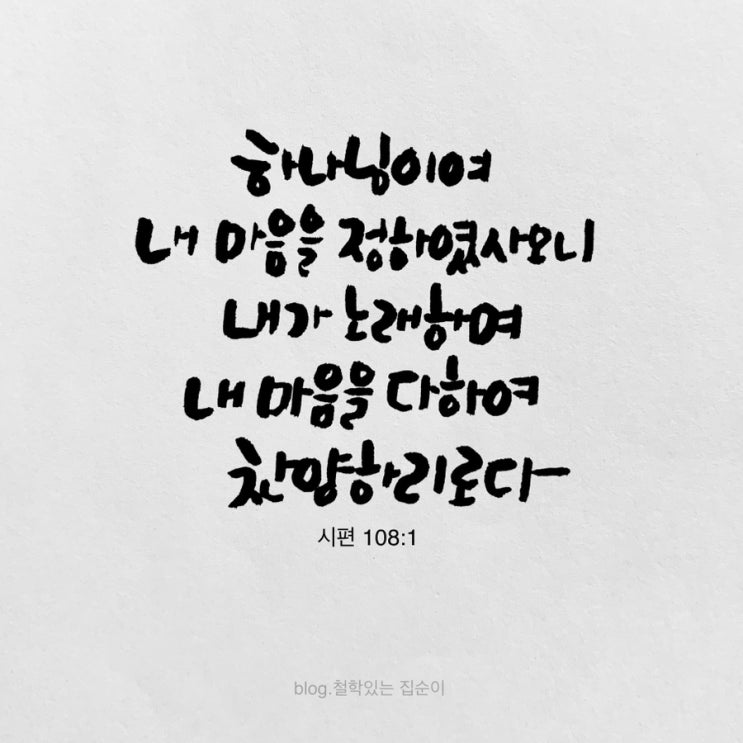 하나님이여
내 마음을 정하였사오니
내가 노래하며
내 마음을 다하여
찬양하리로다
시편 108:1
blog.철학있는 집순이